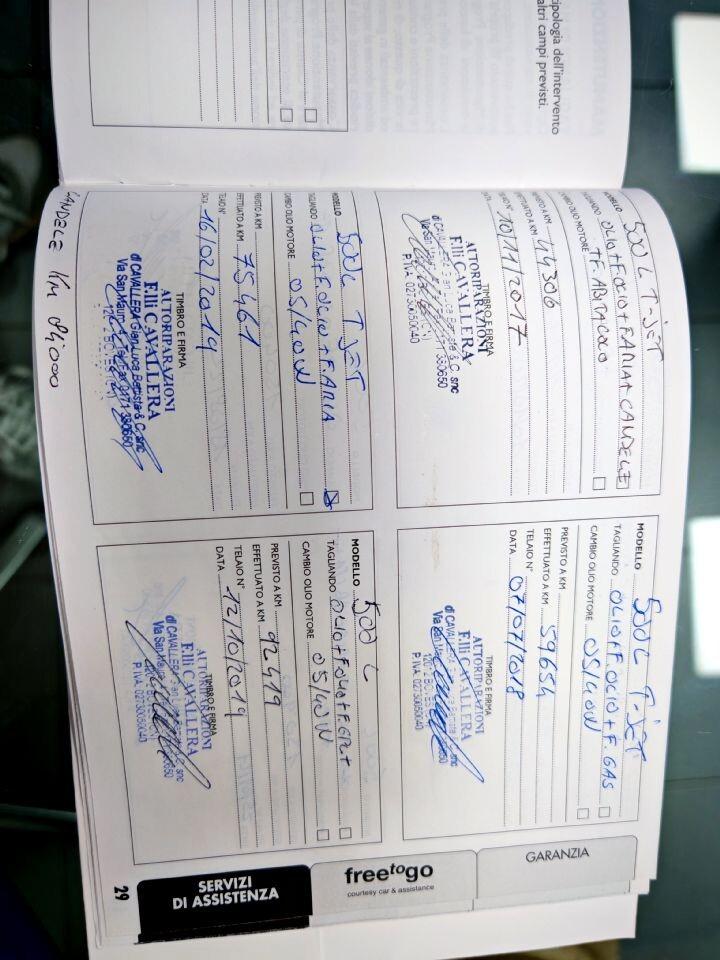 cipologia dell'intervento
altri campi previsti.
MODELLO 500L T-JET
TAGLIANDO OLIO+F.OLIO+F.ARIA+CANDELE
CAMBIO OLIO MOTORE +F. ABITACOLO
PREVISTO A KM
EFFETTUATO A KM 44306
TELAIO N°
DATA 10/11/2017
TIMBRO E FIRMA
AUTORIPARAZIONI
F.lli CAVALLERA
di CAVALLERA & C. snc
Via San
P.IVA 02730050040
MODELLO 500L T-JET
TAGLIANDO OLIO+F.OLIO+F. GAS
CAMBIO OLIO MOTORE 05/40W
PREVISTO A KM
EFFETTUATO A KM 59654
TELAIO N°
DATA 07/07/2018
TIMBRO E FIRMA
AUTORIPARAZIONI
F.lli CAVALLERA
di CAVALLERA & C. snc
Via San
P.IVA 02730050040
MODELLO 500L T-JET
TAGLIANDO OLIO+F.OLIO+F.ARIA
CAMBIO OLIO MOTORE 05/40W
PREVISTO A KM
EFFETTUATO A KM 75461
TELAIO N°
DATA 16/02/2019
TIMBRO E FIRMA
AUTORIPARAZIONI
F.lli CAVALLERA
di CAVALLERA GianLuca Battista & C. snc
Via San Mauro
MODELLO 500 L
TAGLIANDO OLIO+F.OLIO+F.GPL+
CAMBIO OLIO MOTORE 05/40W
PREVISTO A KM
EFFETTUATO A KM 92419
TELAIO N°
DATA 12/10/2019
TIMBRO E FIRMA
AUTORIPARAZIONI
F.lli CAVALLERA
di CAVALLERA & C. snc
Via San Mauro
P.IVA 02730050040
CANDELE KM 84000
GARANZIA
freetogo
courtesy car & assistance
SERVIZI
DI ASSISTENZA
29